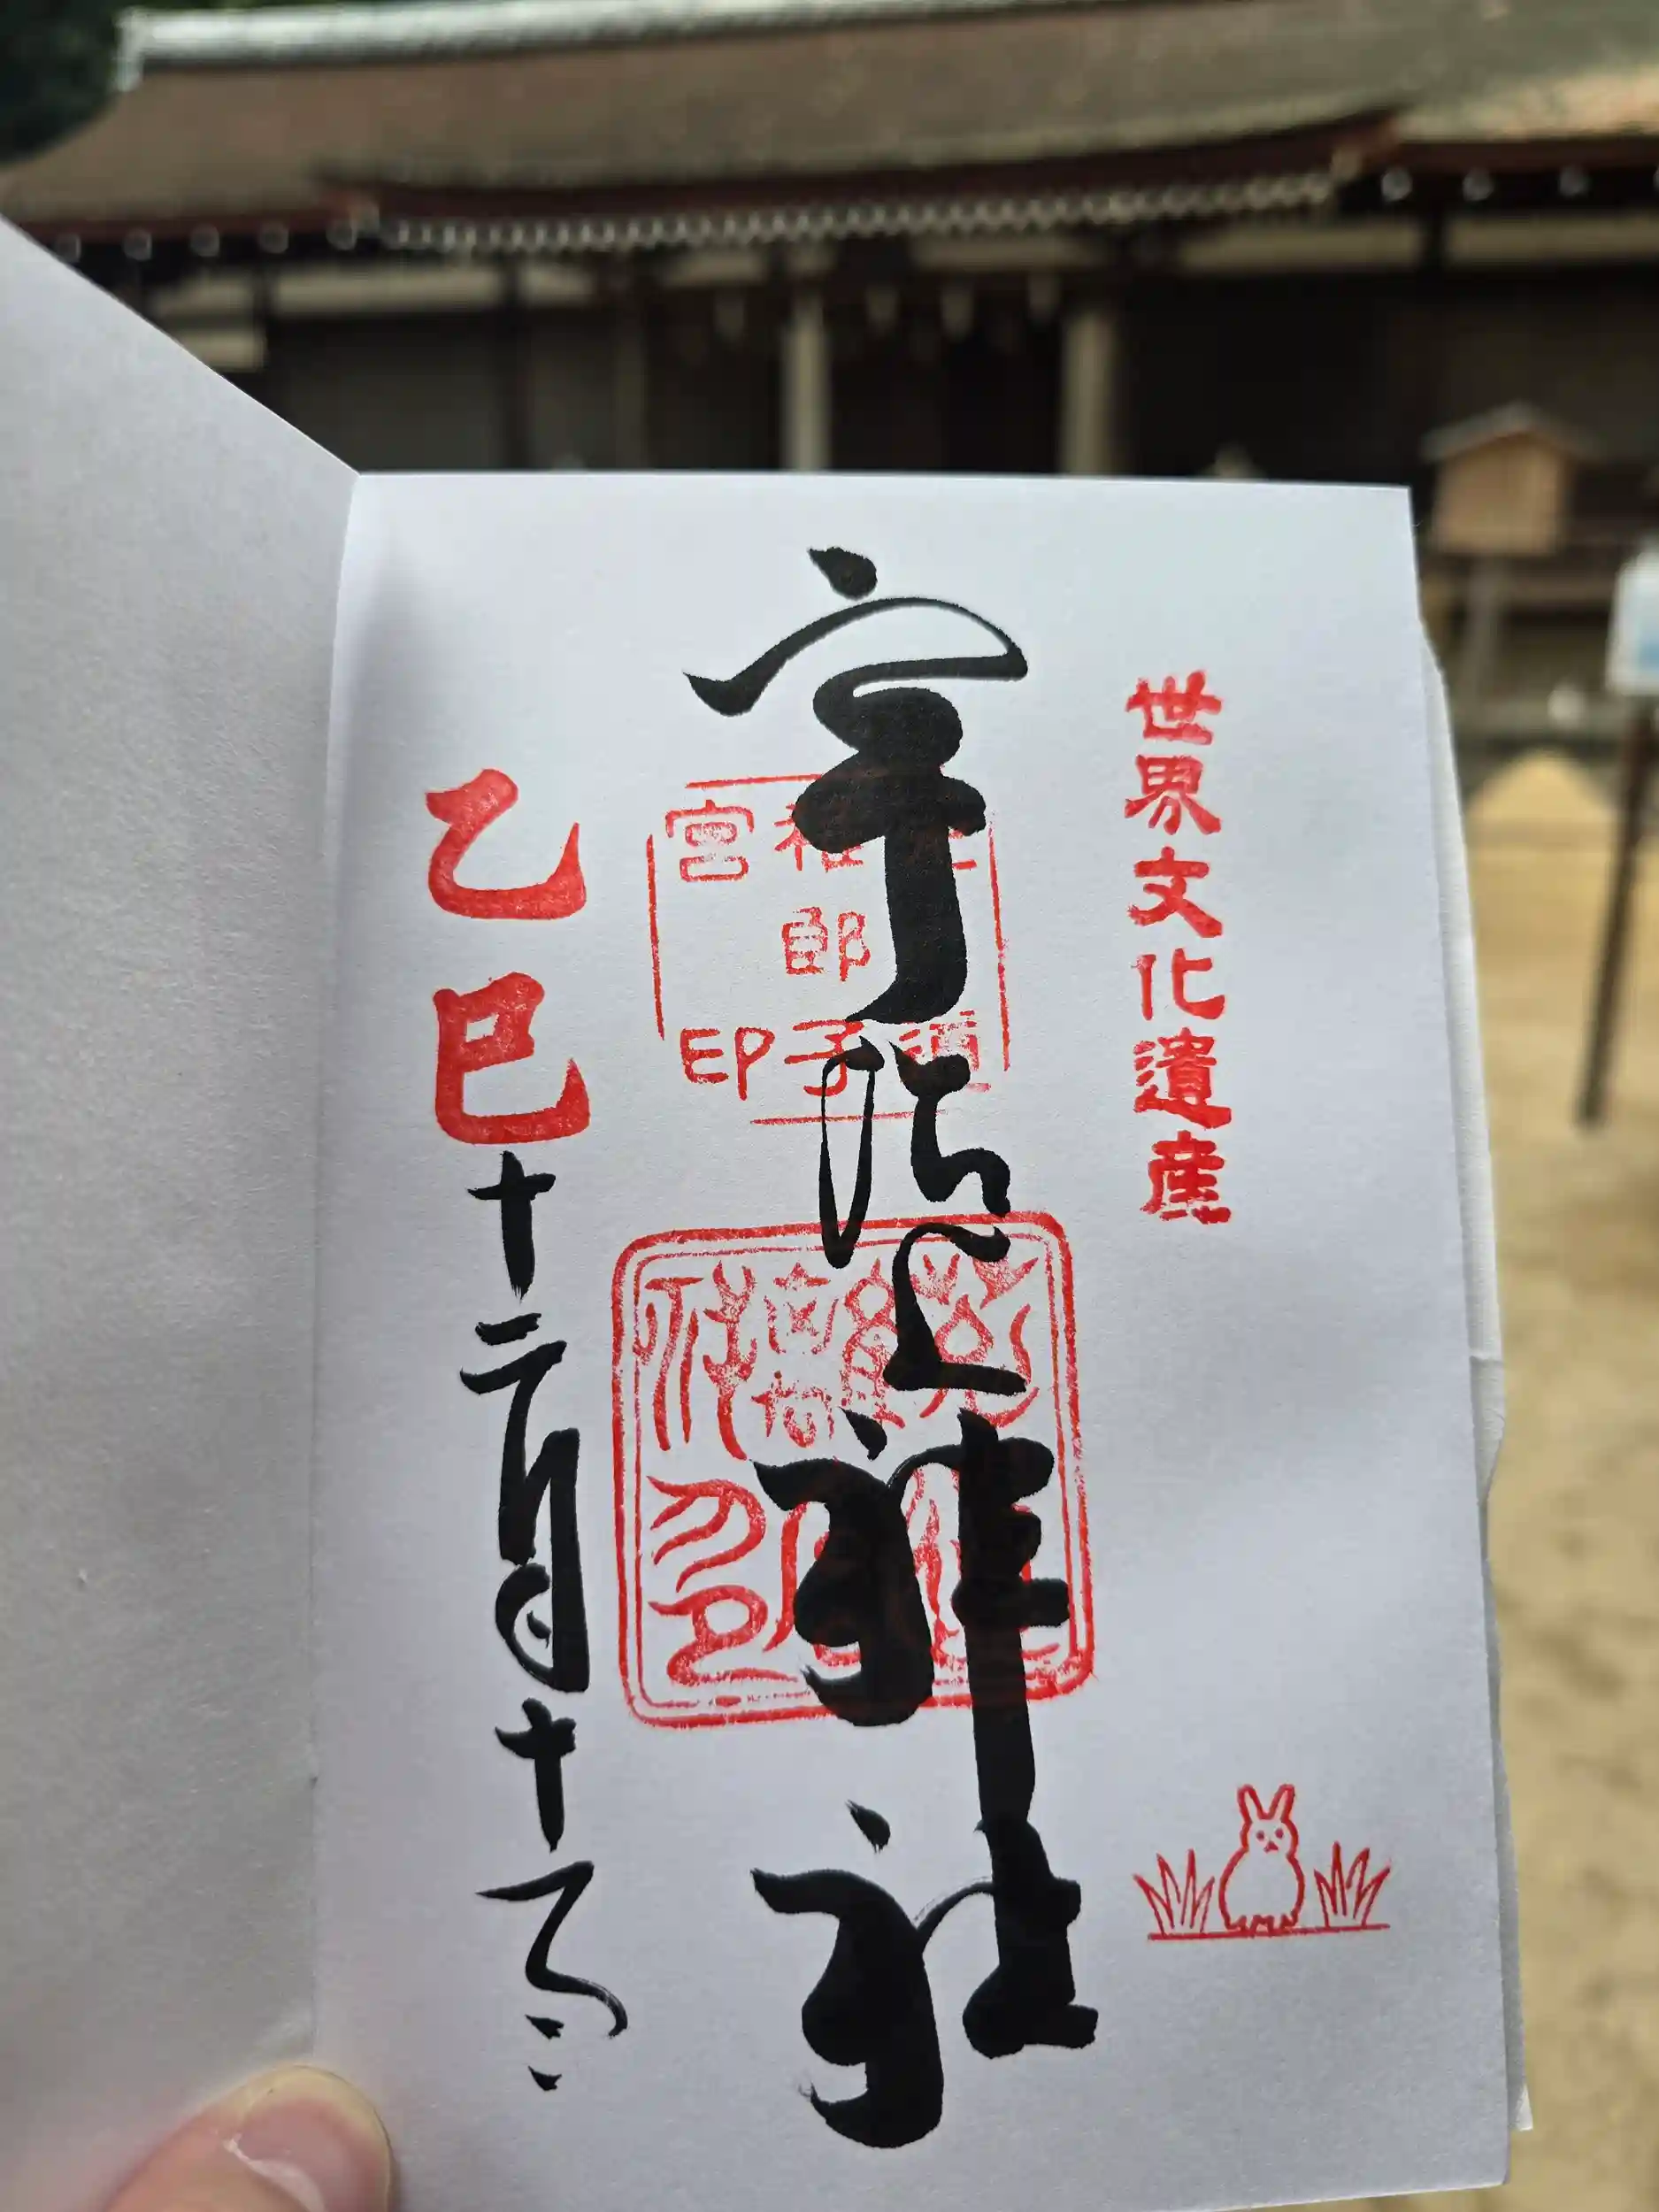 世界文化遺産
宇治上神社
菟道
稚郎子
宮印
乙巳十二月十二日